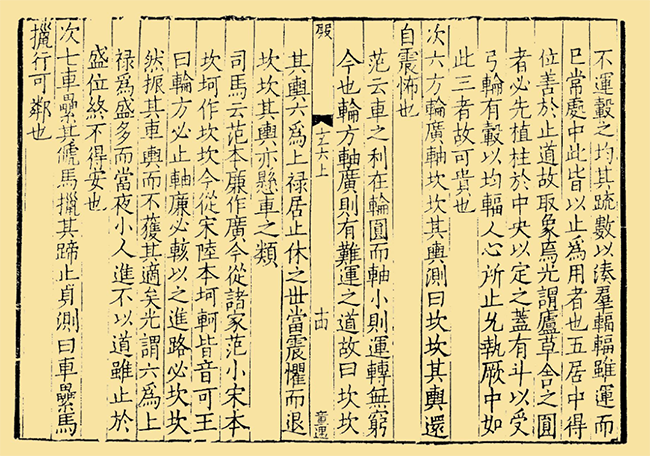 不運轂之均其疏數以湊羣輻輻雖運而
巳常處中此皆以止爲用者也五居中得
位善於止道故取象焉光謂廬草舍之圓
者必先植柱於中央以定之蓋有斗以受
弓輪有轂以均輻人心所止允執厥中如
此三者故可貴也
次六方輪廣軸坎坎其輿測曰坎坎其輿還
自震怖也
范云車之利在輪圓而軸小則運轉無窮
今也輪方軸廣則有難運之道故曰坎坎
玄六上
十四
童遇
其輿六爲上禄居止休之世當震懼而退
坎坎其輿亦懸車之類
司馬云范本廉作廣今從諸家范小宋本
坎坷作坎坎今從宋陸本坷軻皆音可王
曰輪方必止軸廉必輆以之進路必坎坎
然振其車輿而不獲其適矣光謂六爲上
禄爲盛多而當夜小人進不以道雖止於
盛位終不得安也
次七車纍其俿馬攦其蹄止貞測曰車纍馬
攦行可鄰也